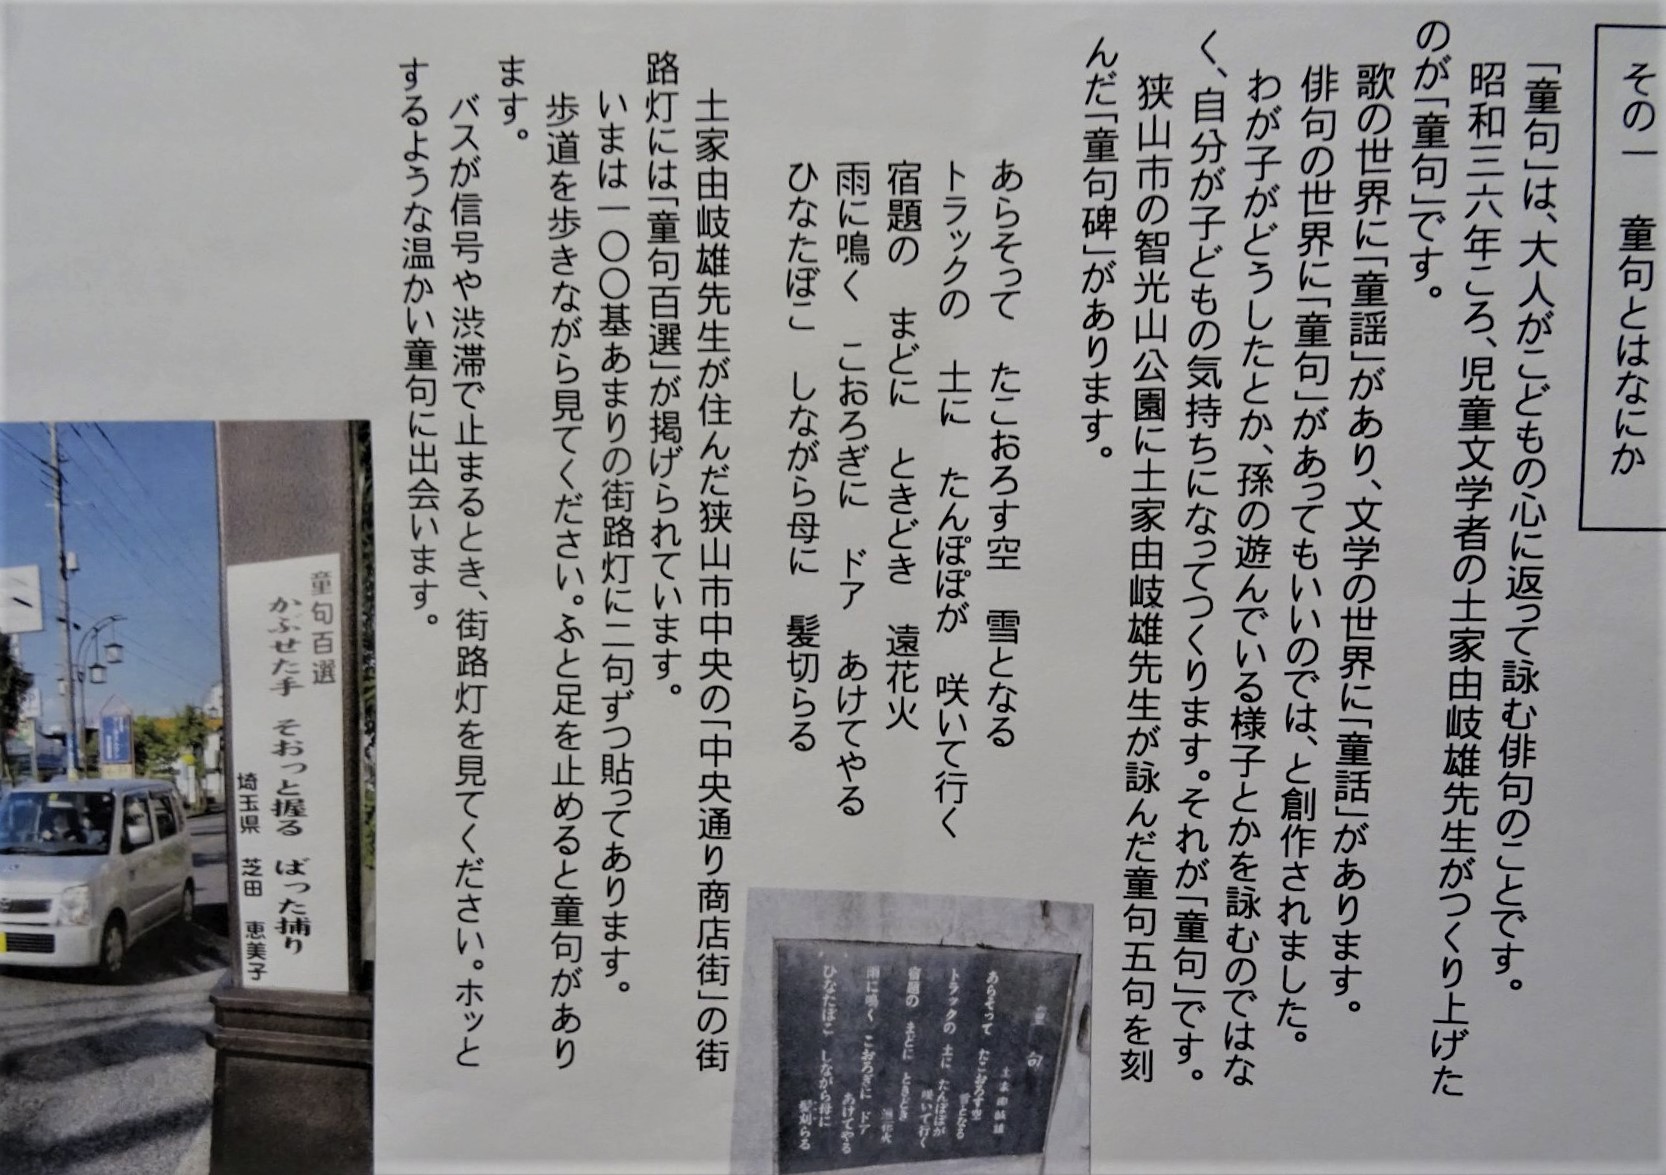 その一　童句とはなにか
「童句」は、大人がこどもの心に返って詠む俳句のことです。
昭和三六年ころ、児童文学者の土家由岐雄先生がつくり上げた
のが「童句」です。
歌の世界に「童謡」があり、文学の世界に「童話」があります。
俳句の世界に「童句」があってもいいのでは、と創作されました。
わが子がどうしたとか、孫の遊んでいる様子とかを詠むのではな
く、自分が子どもの気持ちになってつくります。それが「童句」です。
狭山市の智光山公園に土家由岐雄先生が詠んだ童句五句を刻
んだ「童句碑」があります。
あらそって　たこおろす空　雪となる
トラックの　土に　たんぽぽが　咲いて行く
宿題の　まどに　ときどき　遠花火
雨に鳴く　こおろぎに　ドア　あけてやる
ひなたぼこ　しながら母に　髪切らる
童句
土家由岐雄
あらそって　たこおろす空
雪となる
トラックの　土に　たんぽぽが
咲いて行く
宿題の　まどに　ときどき
遠花火
雨に鳴く　こおろぎに　ドア
あけてやる
ひなたぼこ　しながら母に
髪刈らる
土家由岐雄先生が住んだ狭山市中央の「中央通り商店街」の街
路灯には「童句百選」が掲げられています。
いまは一〇〇基あまりの街路灯に二句ずつ貼ってあります。
歩道を歩きながら見てください。ふと足を止めると童句があり
ます。
バスが信号や渋滞で止まるとき、街路灯を見てください。ホッと
するような温かい童句に出会います。
童句百選
かぶせた手　そおっと握る　ばった捕り
埼玉県　芝田　恵美子